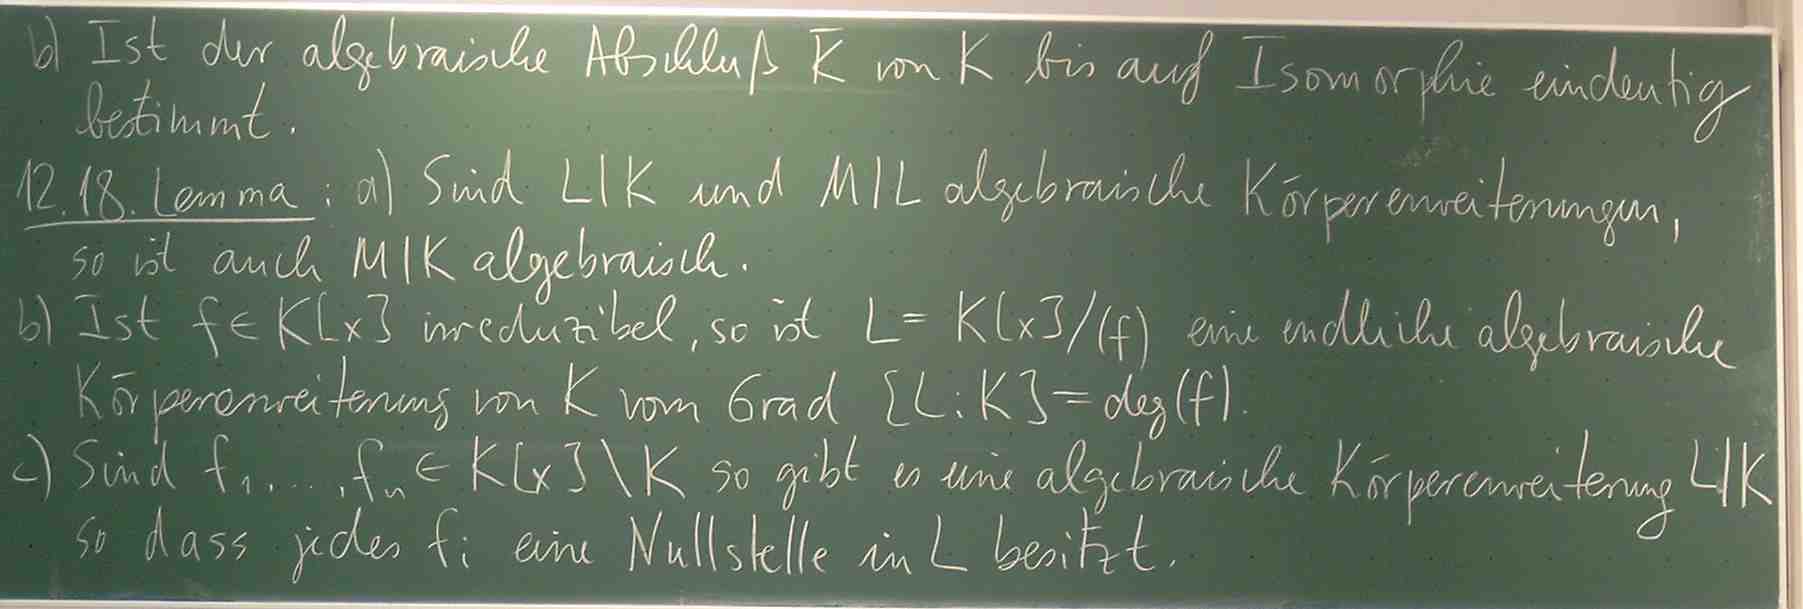 b) Ist der algebraische Abschluß K̅ von K bis auf Isomorphie eindeutig
bestimmt.
12.18. Lemma : a) Sind L|K und M|L algebraische Körpererweiterungen,
so ist auch M|K algebraisch.
b) Ist f ∈ K[x] irreduzibel, so ist L = K[x]/(f) eine endliche algebraische
Körpererweiterung von K vom Grad [L:K] = deg(f).
c) Sind f₁,...,fₙ ∈ K[x]\K so gibt es eine algebraische Körpererweiterung L|K
so dass jedes fᵢ eine Nullstelle in L besitzt.